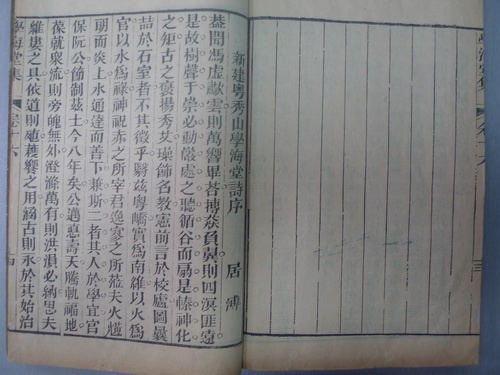 新建粵秀山學海堂詩序　居溥
蓋聞馮虛歗雲則萬響畢荅搏猋負鼻則四溟匪遠
是故樹聲于崇必動嚴處之聽循谷而扇是臻神化
之矩古之襃揚秀艾璪飾名教憲前言於校處圖曩
喆於石室者不其微乎緊茲粵嶠實為南維以火為
官以水為祿神祝赤之所宰君逸寥之所蒞夫火熾
朝而炎上水通達而善下兼斯二者其人於學宜官
保阮公節制茲土今八年矣公邁惪壽天騰軌福地
葆就衆流則旁魄無外澄滌萬有則洪溳必納思夫
維婁之具依道則殖蒦饗之用涵古則永於其始治
學海堂集　卷十六